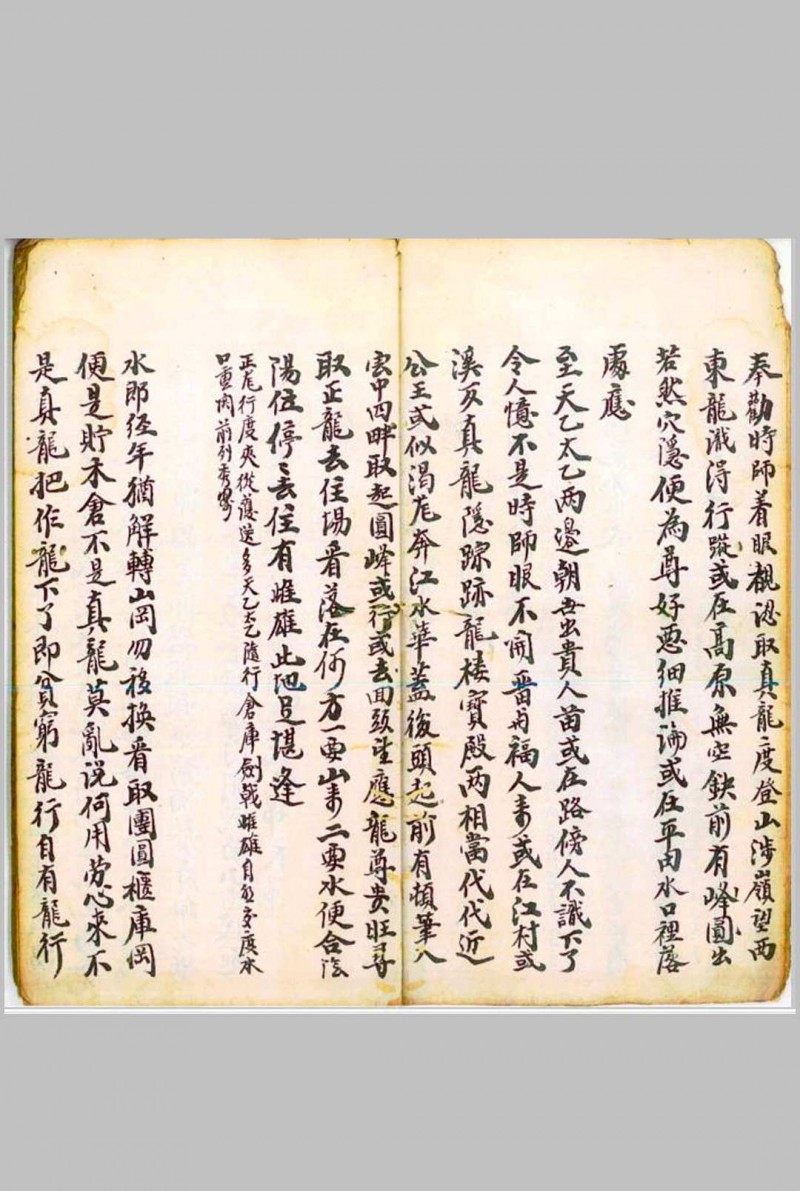 奉勸時師着眼覩認取真龍二度登山涉嶺望西
東龍濺得行蹤或在高原無空缺前有峰圓出
若然穴隱便為尊好惡細推論或在平田水口裡落
處應
至天乙太乙兩邊朝每出貴人苗或在路傍人不識下了
令人憶不是時師眼不開畱與福人來或在江村或
溪及真龍隱踪跡龍樓寶殿两相當代代近
公王或似渴龙奔江水華蓋後頭起前有頓筆入
雲中四畔取起圓峰或行或去回頭望應龍尊貴旺尋
取正龍去住場看落在何方一要山来二要水便合陰
陽位停〻去住有雌雄此地足堪逢
正龙行度夾從護送多天乙太乙隨行倉庫劍戟雌雄自交度水
口重関前列秀
水即经年猶解轉山岡勿移換看取團圓櫃庫岡
便是貯禾倉不是真龍莫亂说何用劳心来不
是真龍把作龍下了即貧窮龍行自有龍行